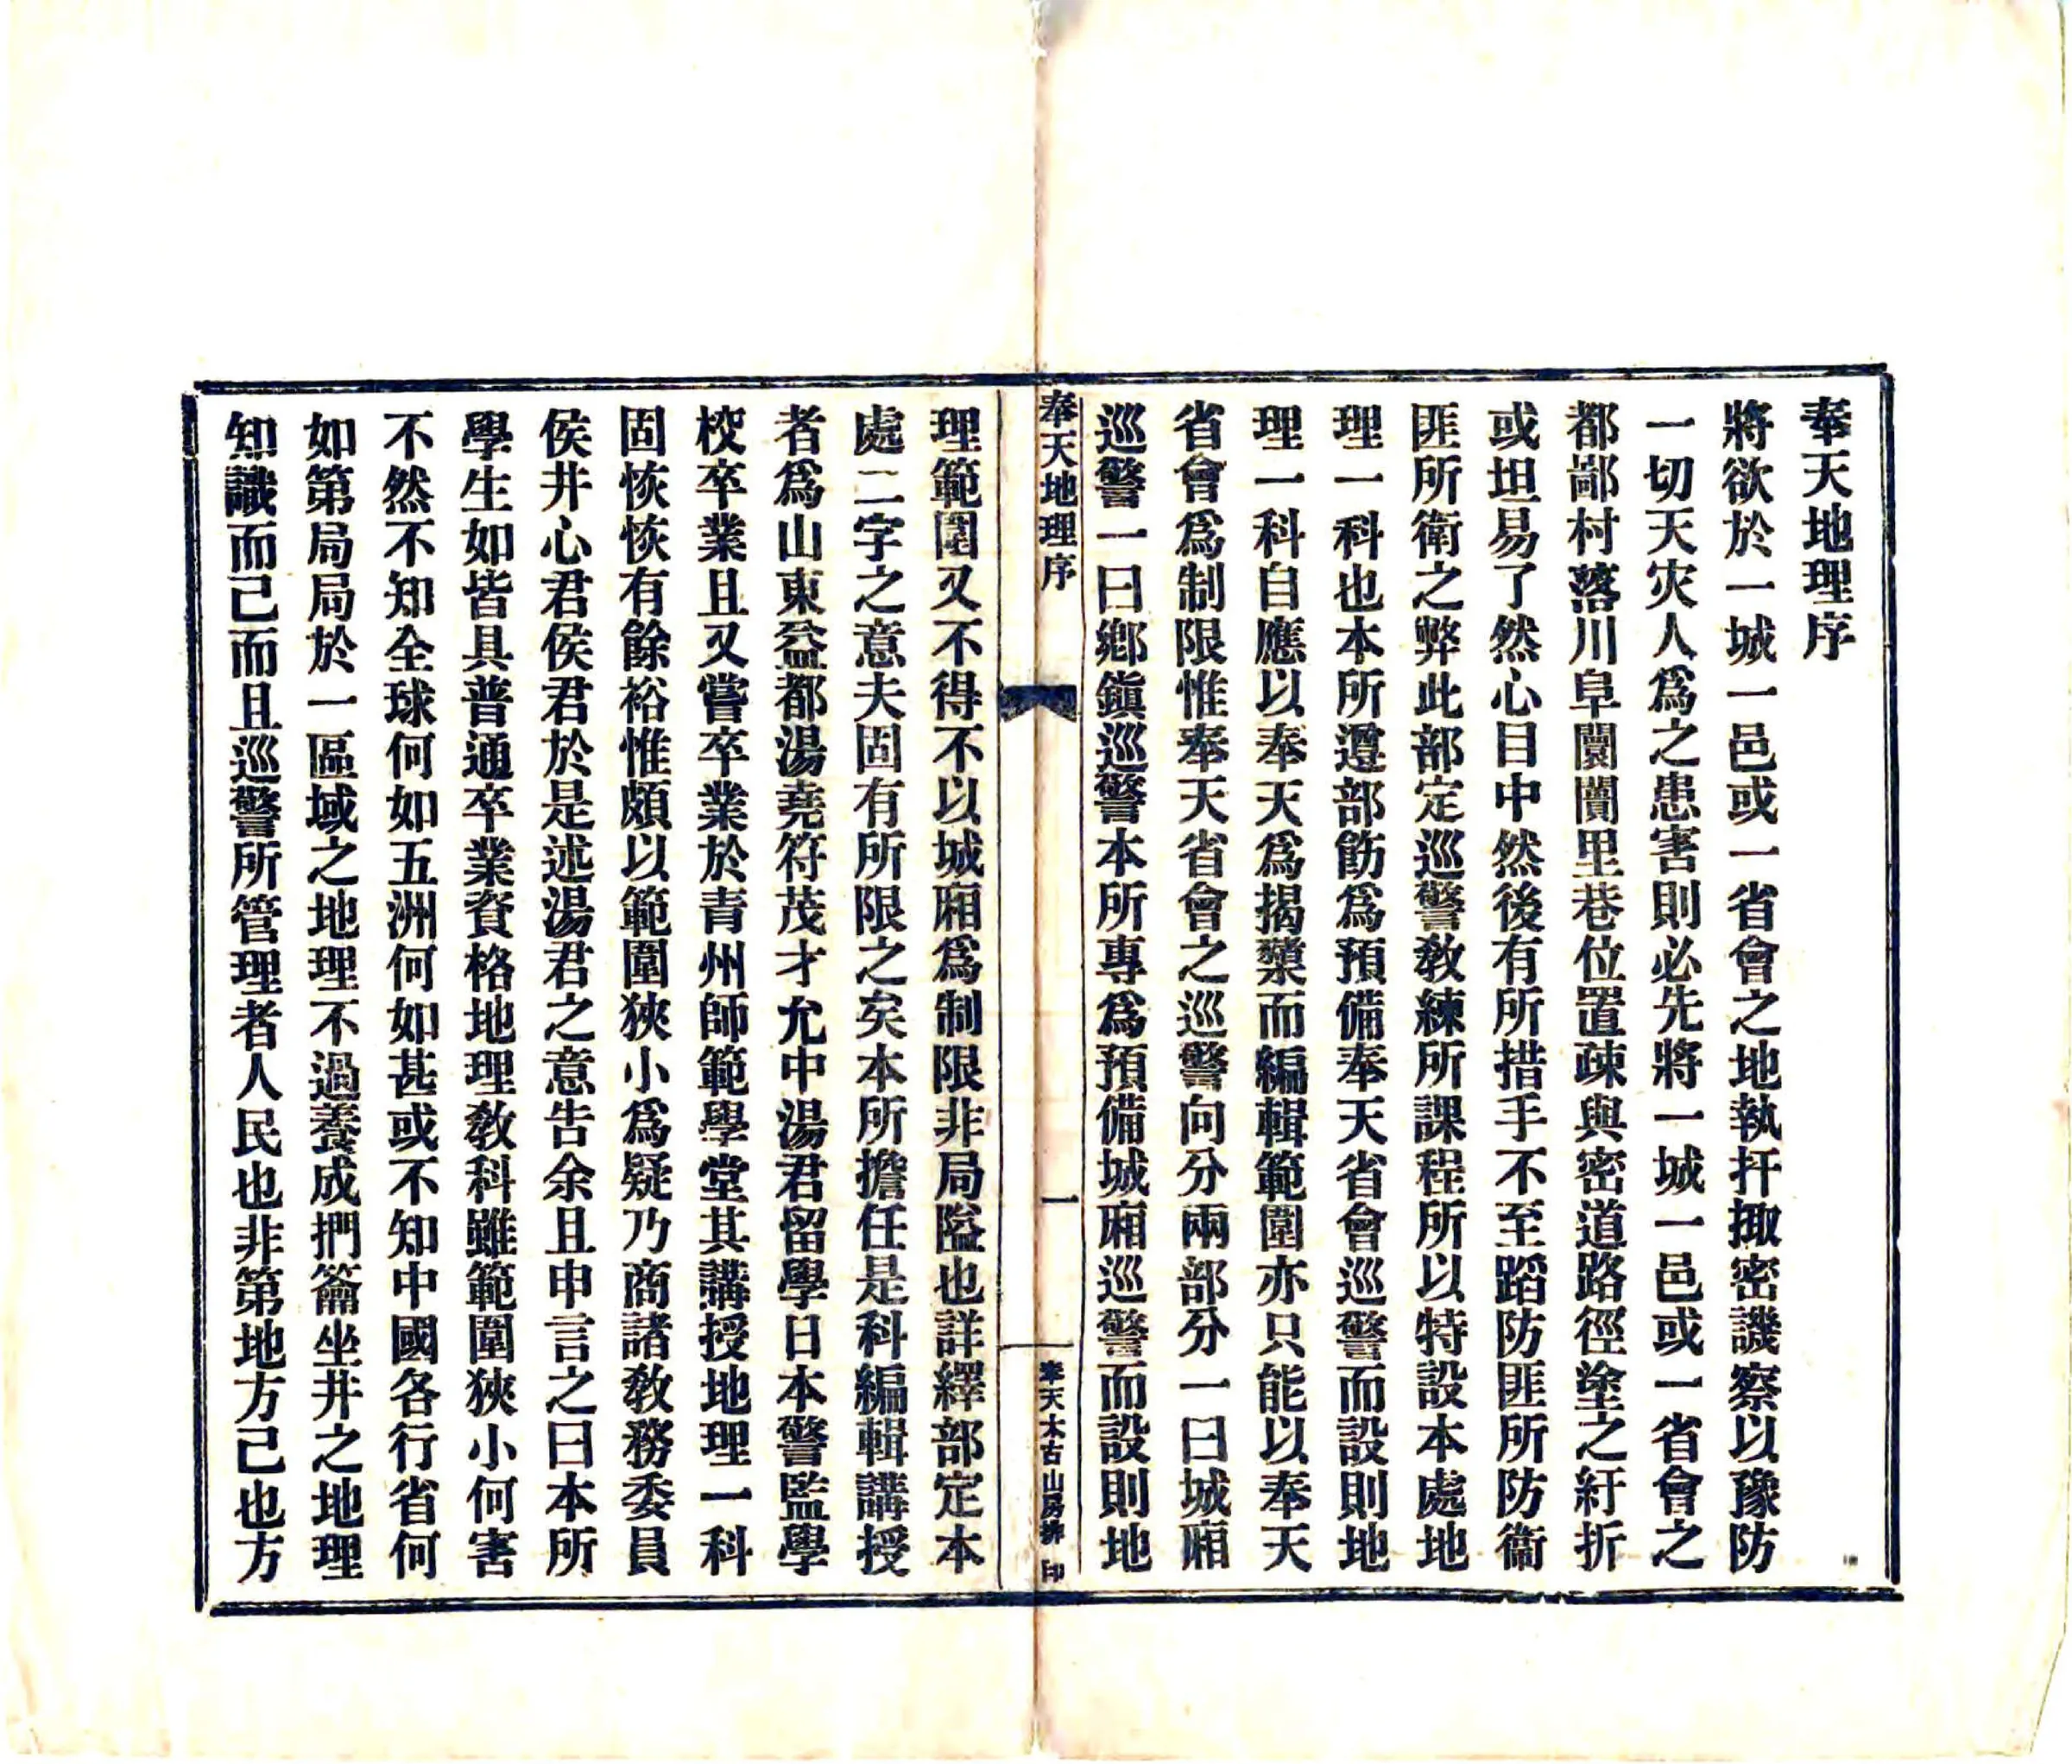 奉天地理序
將欲於一城一邑或一省會之地執扞掫密譏察以豫防
一切天灾人爲之患害則必先將一城一邑或一省會之
都鄙村落川阜闤闠里巷位置疎與密道路徑塗之紆折
或坦易了然心目中然後有所措手不至蹈防匪所防衞
匪所衛之弊此部定巡警敎練所課程所以特設本處地
理一科也本所遵部飭爲預備奉天省會巡警而設則地
理一科自應以奉天爲揭櫫而編輯範圍亦只能以奉天
省會爲制限惟奉天省會之巡警向分兩部分一曰城廂
巡警一曰鄉鎭巡警本所專爲預備城廂巡警而設則地
奉天地理序
一
奉天太古山房排印
理範圍又不得不以城廂爲制限非局隘也詳繹部定本
處二字之意夫固有所限之矣本所擔任是科編輯講授
者爲山東益都湯堯符茂才允中湯君留學日本警監學
校卒業且又嘗卒業於青州師範學堂其講授地理一科
固恢恢有餘裕惟頗以範圍狹小爲疑乃商諸敎務委員
侯井心君侯君於是述湯君之意告余且申言之曰本所
學生如皆具普通卒業資格地理敎科雖範圍狹小何害
不然不知全球何如五洲何如甚或不知中國各行省何
如第局局於一區域之地理不過養成捫籥坐井之地理
知識而已而且巡警所管理者人民也非第地方已也方